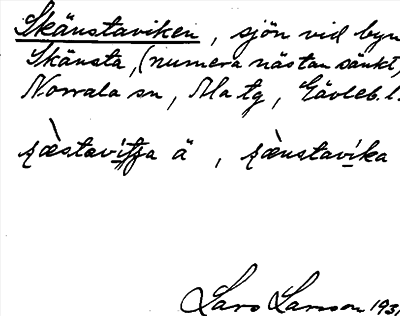 Skänstaviken, sjön vid byn
Skänsta, (numera nästan sänkt)
Norrala sn, Ala tg, Gävleb. l.
ʂæ̀stavitʃa ä, ʂæ̀nstavika
Lars Larsson 1931